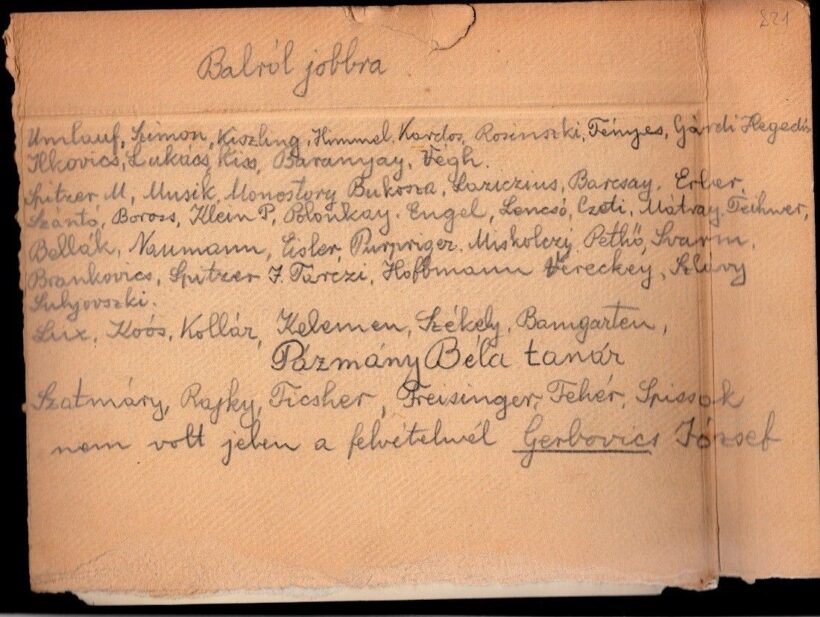 821
Balról jobbra
Umlauf, Simon, Kiszling, Himmel, Kardos, Rosinszki, Fényes, Gárdi Hegedűs
Ilkovics, Lukács, Kiss, Baranyay, Végh.
Spitzer M, Musik, Monostory Bukosza, Laziczius, Barcsay. Erber,
Szántó, Boross, Klein P, Polónkay. Engel, Lencsó, Czeti, Mátray,
Bellák, Naumann, Eisler, Miskolczy, Pethő, Svarm,
Brankovics, Spitzer J. Tárczi, Hoffmann Vereckey, Szlávy
Sulyovszki.
Lux, Koós, Kollár, Kelemen, Székely, Bamgarten,
Pázmány Béla tanár
Szatmáry, Rajky, Ticsher, Preisinger, Fehér, Spissák
nem volt jelen a felvételnél Gerbovics József